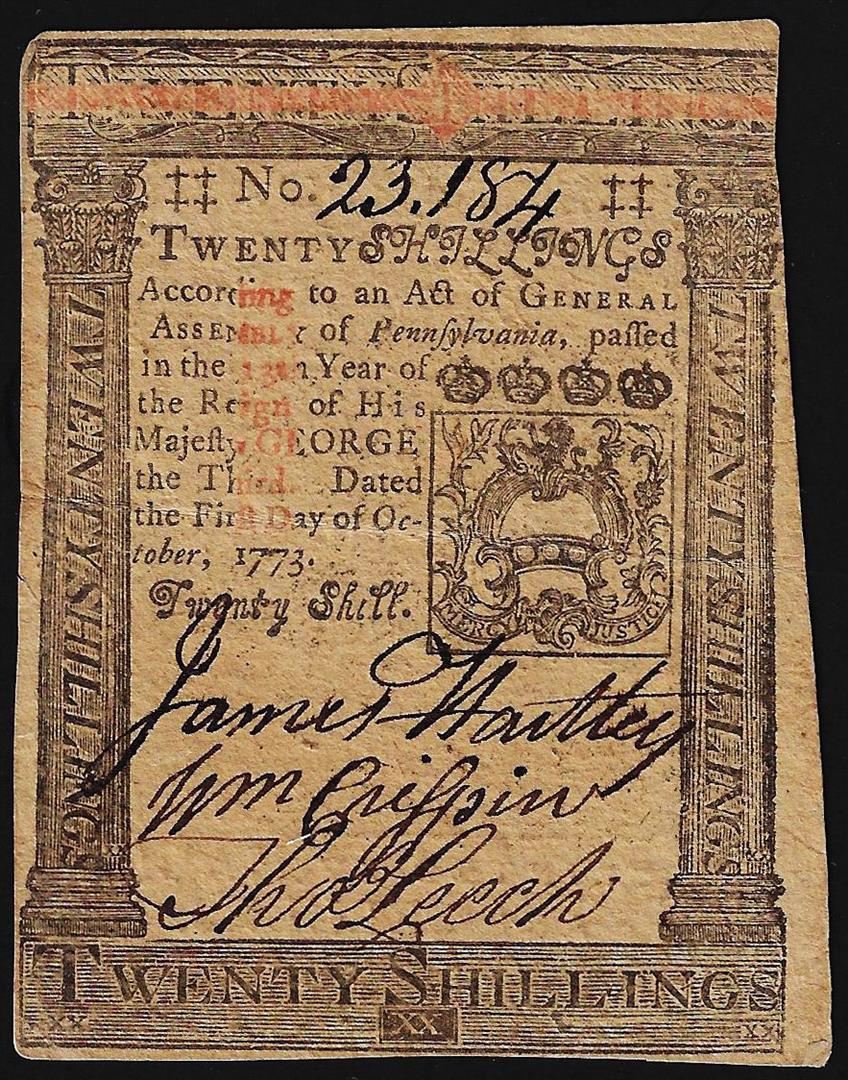 TWENTY SHILLINGS
‡‡ No. 23,184 ‡‡
TWENTY SHILLINGS
According to an Act of GENERAL
ASSEMBLY of Pennſylvania, paſſed
in the 13th Year of
the Reign of His
Majeſty GEORGE
the Third. Dated
the Firſt Day of Oc-
tober, 1773.
Twenty Shill.
MERCY JUSTICE
TWENTY SHILLINGS
TWENTY SHILLINGS
James Hartley
Wm Criſpin
Tho Leech
TWENTY SHILLINGS
XX XX XX